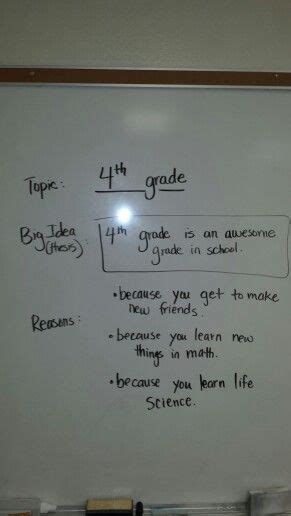 Topic: 4th grade
Big Idea (thesis): 4th grade is an awesome
grade in school.
Reasons:
• because you get to make
new friends.
• because you learn new
things in math.
• because you learn life
Science.